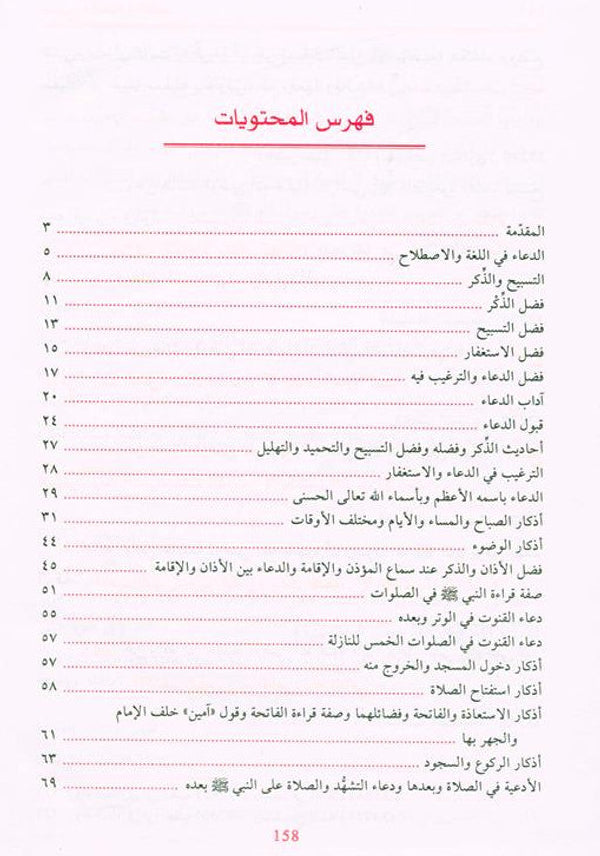 فهرس المحتويات
المقدّمة ........ ٣
الدعاء في اللغة والاصطلاح ........ ٥
التسبيح والذِّكر ........ ٨
فضل الذِّكْر ........ ١١
فضل التسبيح ........ ١٣
فضل الاستغفار ........ ١٥
فضل الدعاء والترغيب فيه ........ ١٧
آداب الدعاء ........ ٢٠
قبول الدعاء ........ ٢٤
أحاديث الذِّكر وفضله وفضل التسبيح والتحميد والتهليل ........ ٢٧
الترغيب في الدعاء والاستغفار ........ ٢٨
الدعاء باسمه الأعظم وبأسماء الله تعالى الحسنى ........ ٢٩
أذكار الصباح والمساء والأيام ومختلف الأوقات ........ ٣١
أذكار الوضوء ........ ٤٤
فضل الأذان والذكر عند سماع المؤذن والإقامة والدعاء بين الأذان والإقامة ........ ٤٥
صفة قراءة النبي ﷺ في الصلوات ........ ٥١
دعاء القنوت في الوتر وبعده ........ ٥٥
دعاء القنوت في الصلوات الخمس للنازلة ........ ٥٧
أذكار دخول المسجد والخروج منه ........ ٥٧
أذكار استفتاح الصلاة ........ ٥٨
أذكار الاستعاذة والفاتحة وفضائلهما وصفة قراءة الفاتحة وقول «آمين» خلف الإمام
والجهر بها ........ ٦١
أذكار الركوع والسجود ........ ٦٣
الأدعية في الصلاة وبعدها ودعاء التشهُّد والصلاة على النبي ﷺ بعده ........ ٦٩
158